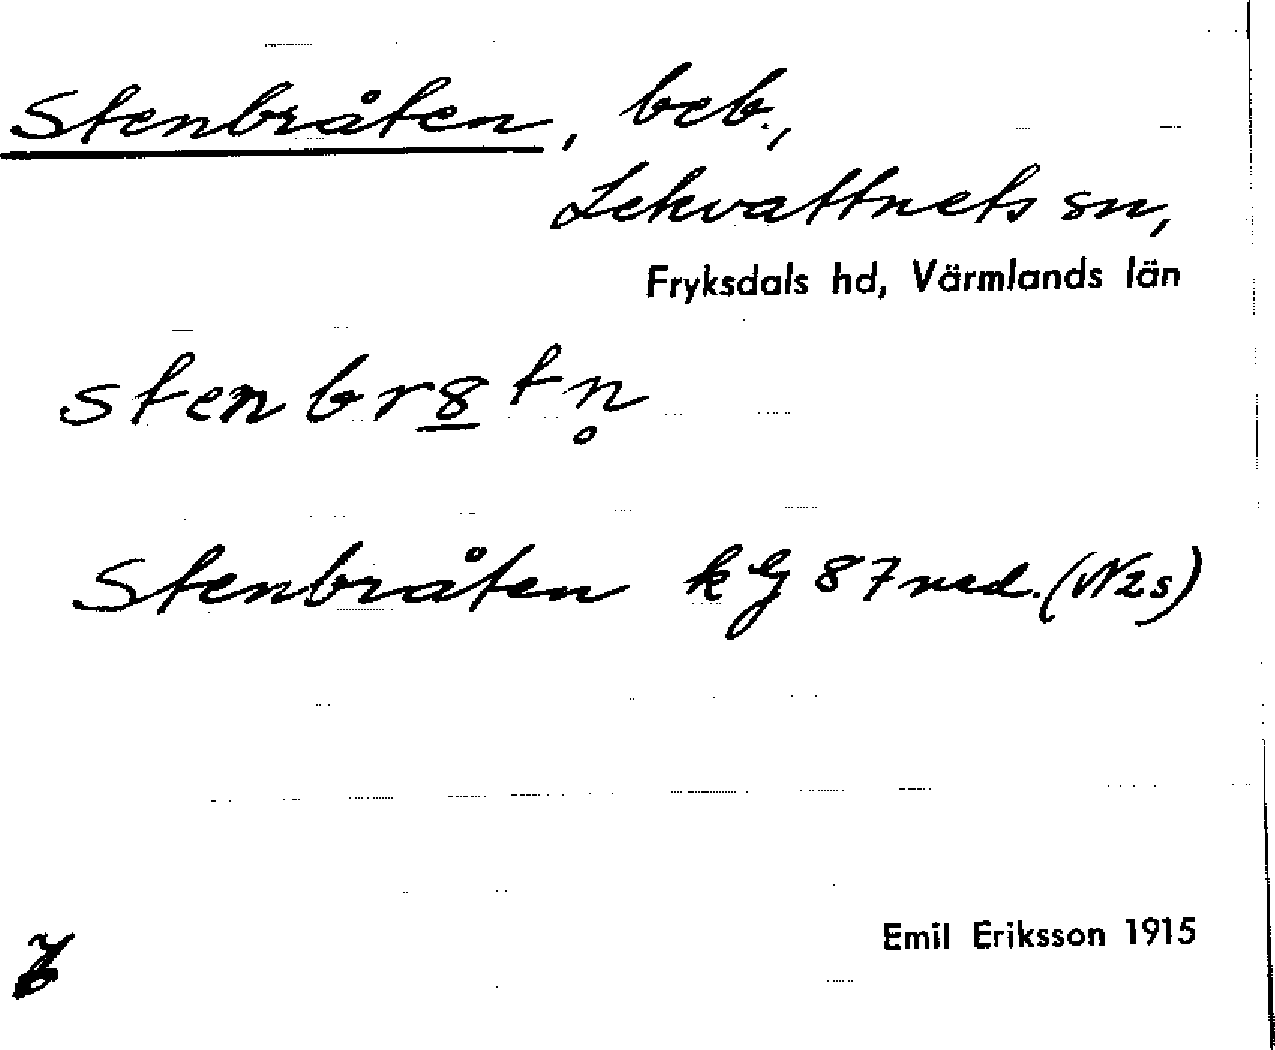 Stenbråten, beb.,
Lekvattnets sn,
Fryksdals hd, Värmlands län
stenbr8tn̥
Stenbråten kG 87 ned. (N2s)
Emil Eriksson 1915